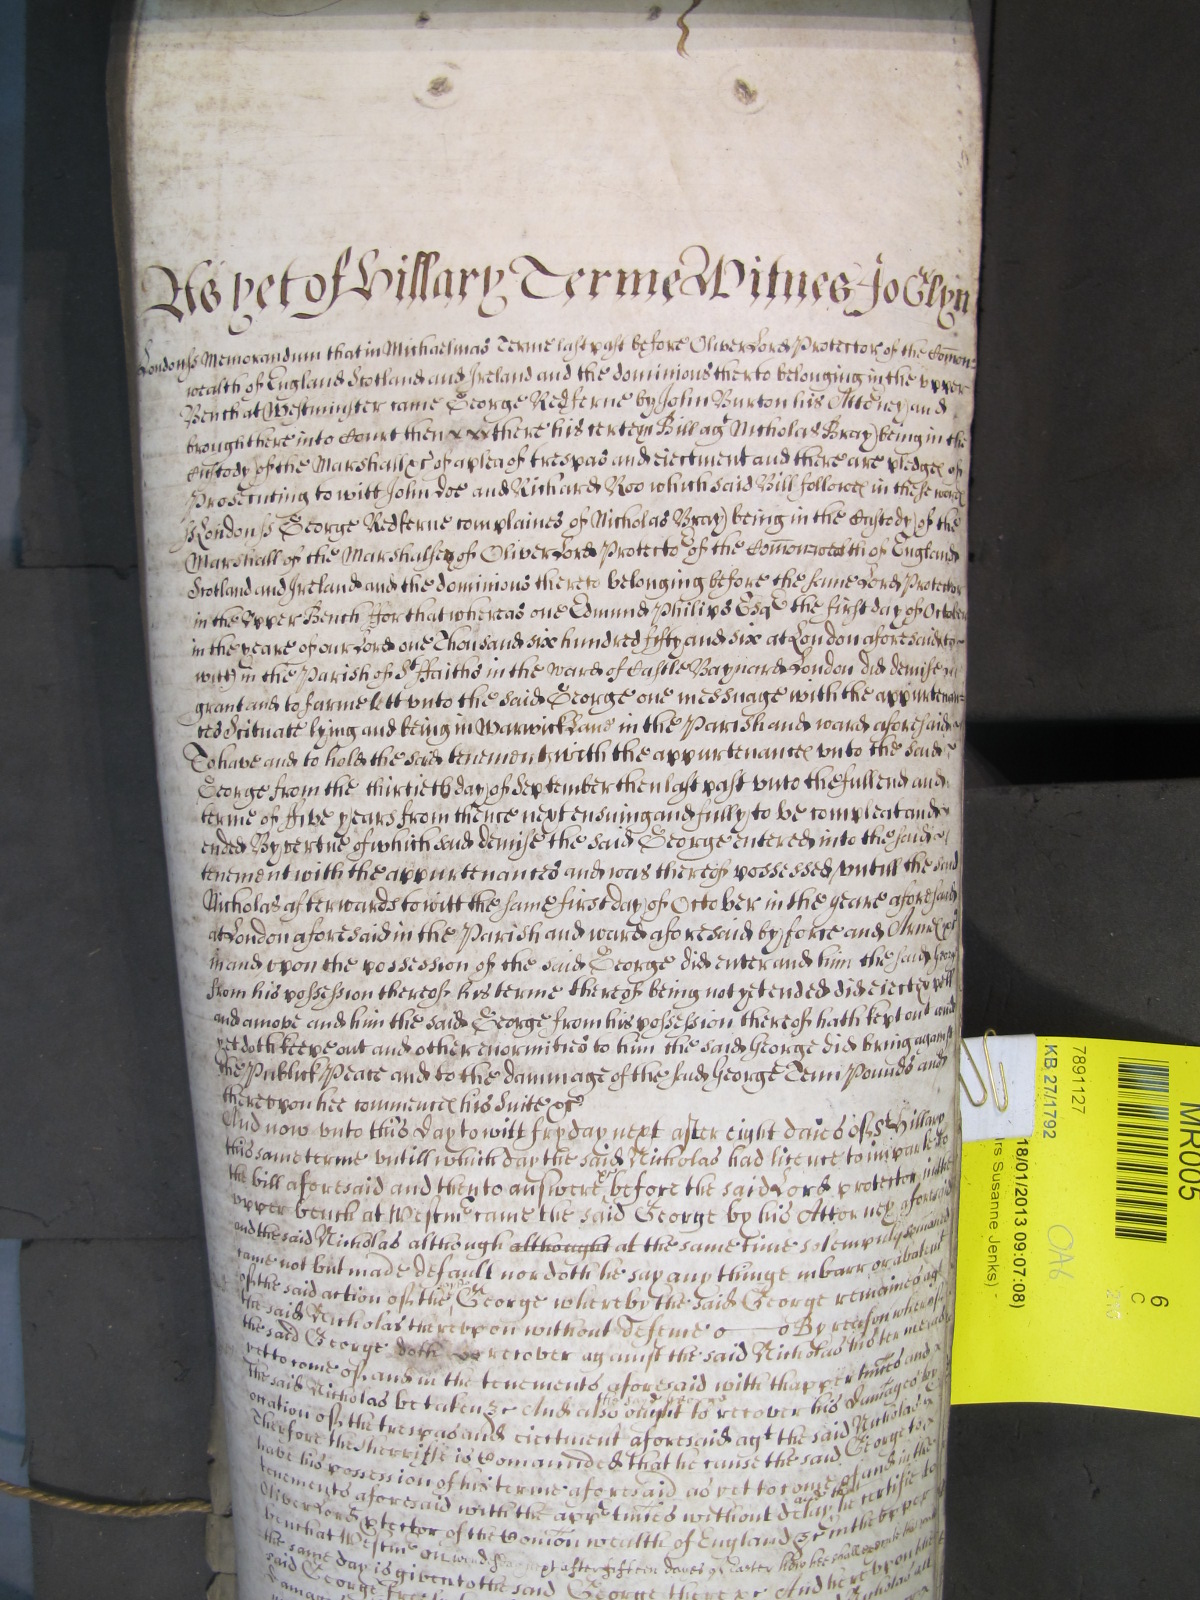 As yet of Hillary Terme Witnes Joslyn
London ss Memorandum that in Michaelmas Terme last past before Oliver Lord Protector of the Comon=
wealth of England Scotland and Ireland and the dominions therto belonging in the upper
Bench at Westminster came George Redferne by John Burton his Attorney and
brought here into Court then xxx there his certeyn Bill agt Nicholas Bray being in the
Custody of the Marshall &c of a plea of trespas and eiectment and there are pledges of
Prosecuting to witt John Doe and Richard Roo which said Bill followes in these words
ss London ss George Redferne complaines of Nicholas Bray being in the Custody of the
Marshall of the Marshalsey of Oliver Lord Protector of the Comonwealth of England
Scotland and Ireland and the dominions thereto belonging before the same Lord Protector
in the Upper Bench ffor that whereas one Edmund Philips Esqr the first day of October
in the yeare of our Lord one Thousand six hundred fifty and six at London aforesaid to
witt in the Parish of St ffaiths in the ward of Castle Baynard London did demise
grant and to farme lett unto the said George one messuage with the appurtenan=
ces Scituate lying and being in Warwick Lane in the Parish and ward aforesaid
To have and to hold the said tenement with the appurtenances unto the said
George from the thirtieth day of September then last past unto the full end and
terme of ffive years from thence next ensuing and fully to be compleat and
ended By vertue of which said demise the said George entered into the said
tenement with the appurtenances and was thereof possessed untill the said
Nicholas afterwards to witt the same first day of October in the yeare aforesaid
at London aforesaid in the Parish and ward aforesaid by force and Armes &c
in and upon the possession of the said George did enter and him the said George
from his possession thereof his terme thereof being not yet ended did eiect expell
and amove and him the said George from his possession thereof hath kept out and
yet doth keepe out and other enormities to him the said George did bring against
the Publick Peace and to the dammage of the said George Tenn Pounds and
thereupon hee commences his Suite &c
And now unto this day to witt fryday next after eight daies of St Hillary
this same terme untill which day the said Nicholas had licence to imparle to
the bill aforesaid and then to answere &c before the said Lord protector in the
upper bench at Westmr came the said George by his Attorney aforesaid
and the said Nicholas although althought at the same time solempnly demanded
came not but made default nor doth he say any thinge in barr or avoidance
of the said action of the said George whereby the said George remaines agt
the said Nicholas thereupon without defence o o By reason whereof
the said George doth recover against the said Nicholas his terme
yet to come of and in the tenements aforesaid with thappertunces and
the said Nicholas be taken &c And also ought to recover his damages by
occation of the trespas and eiectment aforesaid agt the said Nicholas
Therfore the sherriffe is Comanded that he cause the said George to
have his possession of his terme aforesaid as yet to come of and in the
tenements aforesaid with the appurtunces without delay he certifie to
Oliver Lord protector of the Comon wealth of England &c in the upper
bench at Westmr on next after fifteen dayes of Easter how hee shall execute
the same day is given to the said George there &c And hereupon
said George
MR005
6
C
7891127
KB 27/1792
18/01/2013 09:07:08)
rs Susanne Jenks) -
OA6